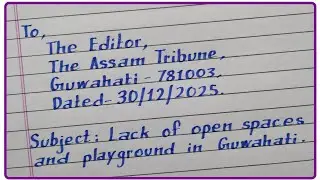 To,
The Editor,
The Assam Tribune,
Guwahati - 781003.
Dated- 30/12/2025.
Subject: Lack of open spaces
and playground in Guwahati.